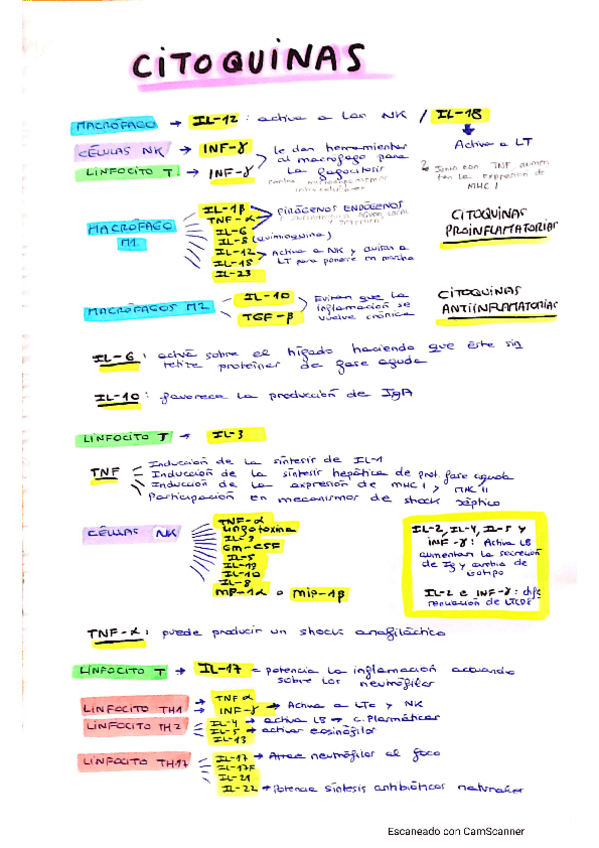 CITOQUINAS
MACRÓFAGO → IL-12 : activa a las NK / IL-18
Activa a LT
CÉLULAS NK → INF-γ
LINFOCITO T → INF-γ
le dan herramientas
al macrófago para
la fagocitosis
Junto con TNF aumen
tan la expresión de
MHC I
MACRÓFAGO
M1
IL-1β
TNF-α
PIRÓGENOS ENDÓGENOS
IL-6
IL-8 (quimioquina)
IL-12
IL-18
Activa a NK y avisan a
LT para ponerse en marcha
IL-23
CITOQUINAS
PROINFLAMATORIAS
MACRÓFAGOS M2
IL-10
TGF-β
Evitan que la
inflamación se
vuelva crónica
CITOQUINAS
ANTIINFLAMATORIAS
IL-6 : actúa sobre el hígado haciendo que éste sin
tetice proteínas de fase aguda
IL-10 : favorece la producción de IgA
LINFOCITO T → IL-3
TNF
Inducción de la síntesis de IL-1
Inducción de la síntesis hepática de prot. fase aguda
Inducción de la expresión de MHC I y MHC II
Participación en mecanismos de shock séptico
CÉLULAS NK
TNF-α
Linfotoxina
IL-3
GM-CSF
IL-5
IL-13
IL-10
IL-8
MIP-1α o MIP-1β
IL-2, IL-4, IL-5 y
INF-γ : Activa LB
aumentan la secreción
de Ig y cambio de
isotipo
IL-2 e INF-γ : dife
renciación de LTCD8
TNF-α : puede producir un shock anafiláctico
LINFOCITO T → IL-17 = potencia la inflamación actuando
sobre los neutrófilos
LINFOCITO TH1
TNF α
INF-γ → Activa a LTc y NK
LINFOCITO TH2
IL-4 → activa LB → c. Plasmáticas
IL-5 → activar eosinófilos
IL-13
LINFOCITO TH17
IL-17 → Atrae neutrófilos al foco
IL-17F
IL-21
IL-22 → Potencia síntesis antibióticos naturales
Escaneado con CamScanner